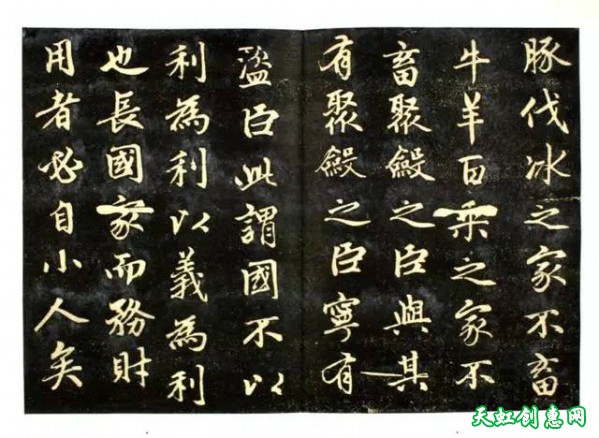 豚伐冰之家不畜
牛羊百乘之家不
畜聚斂之臣與其
有聚斂之臣寧有
盜臣此謂國不以
利為利以義為利
也長國家而務財
用者必自小人矣
天虹创惠网